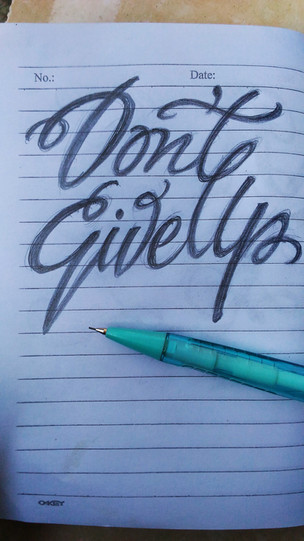 No.: Date:
Don't
Give Up
OKEY